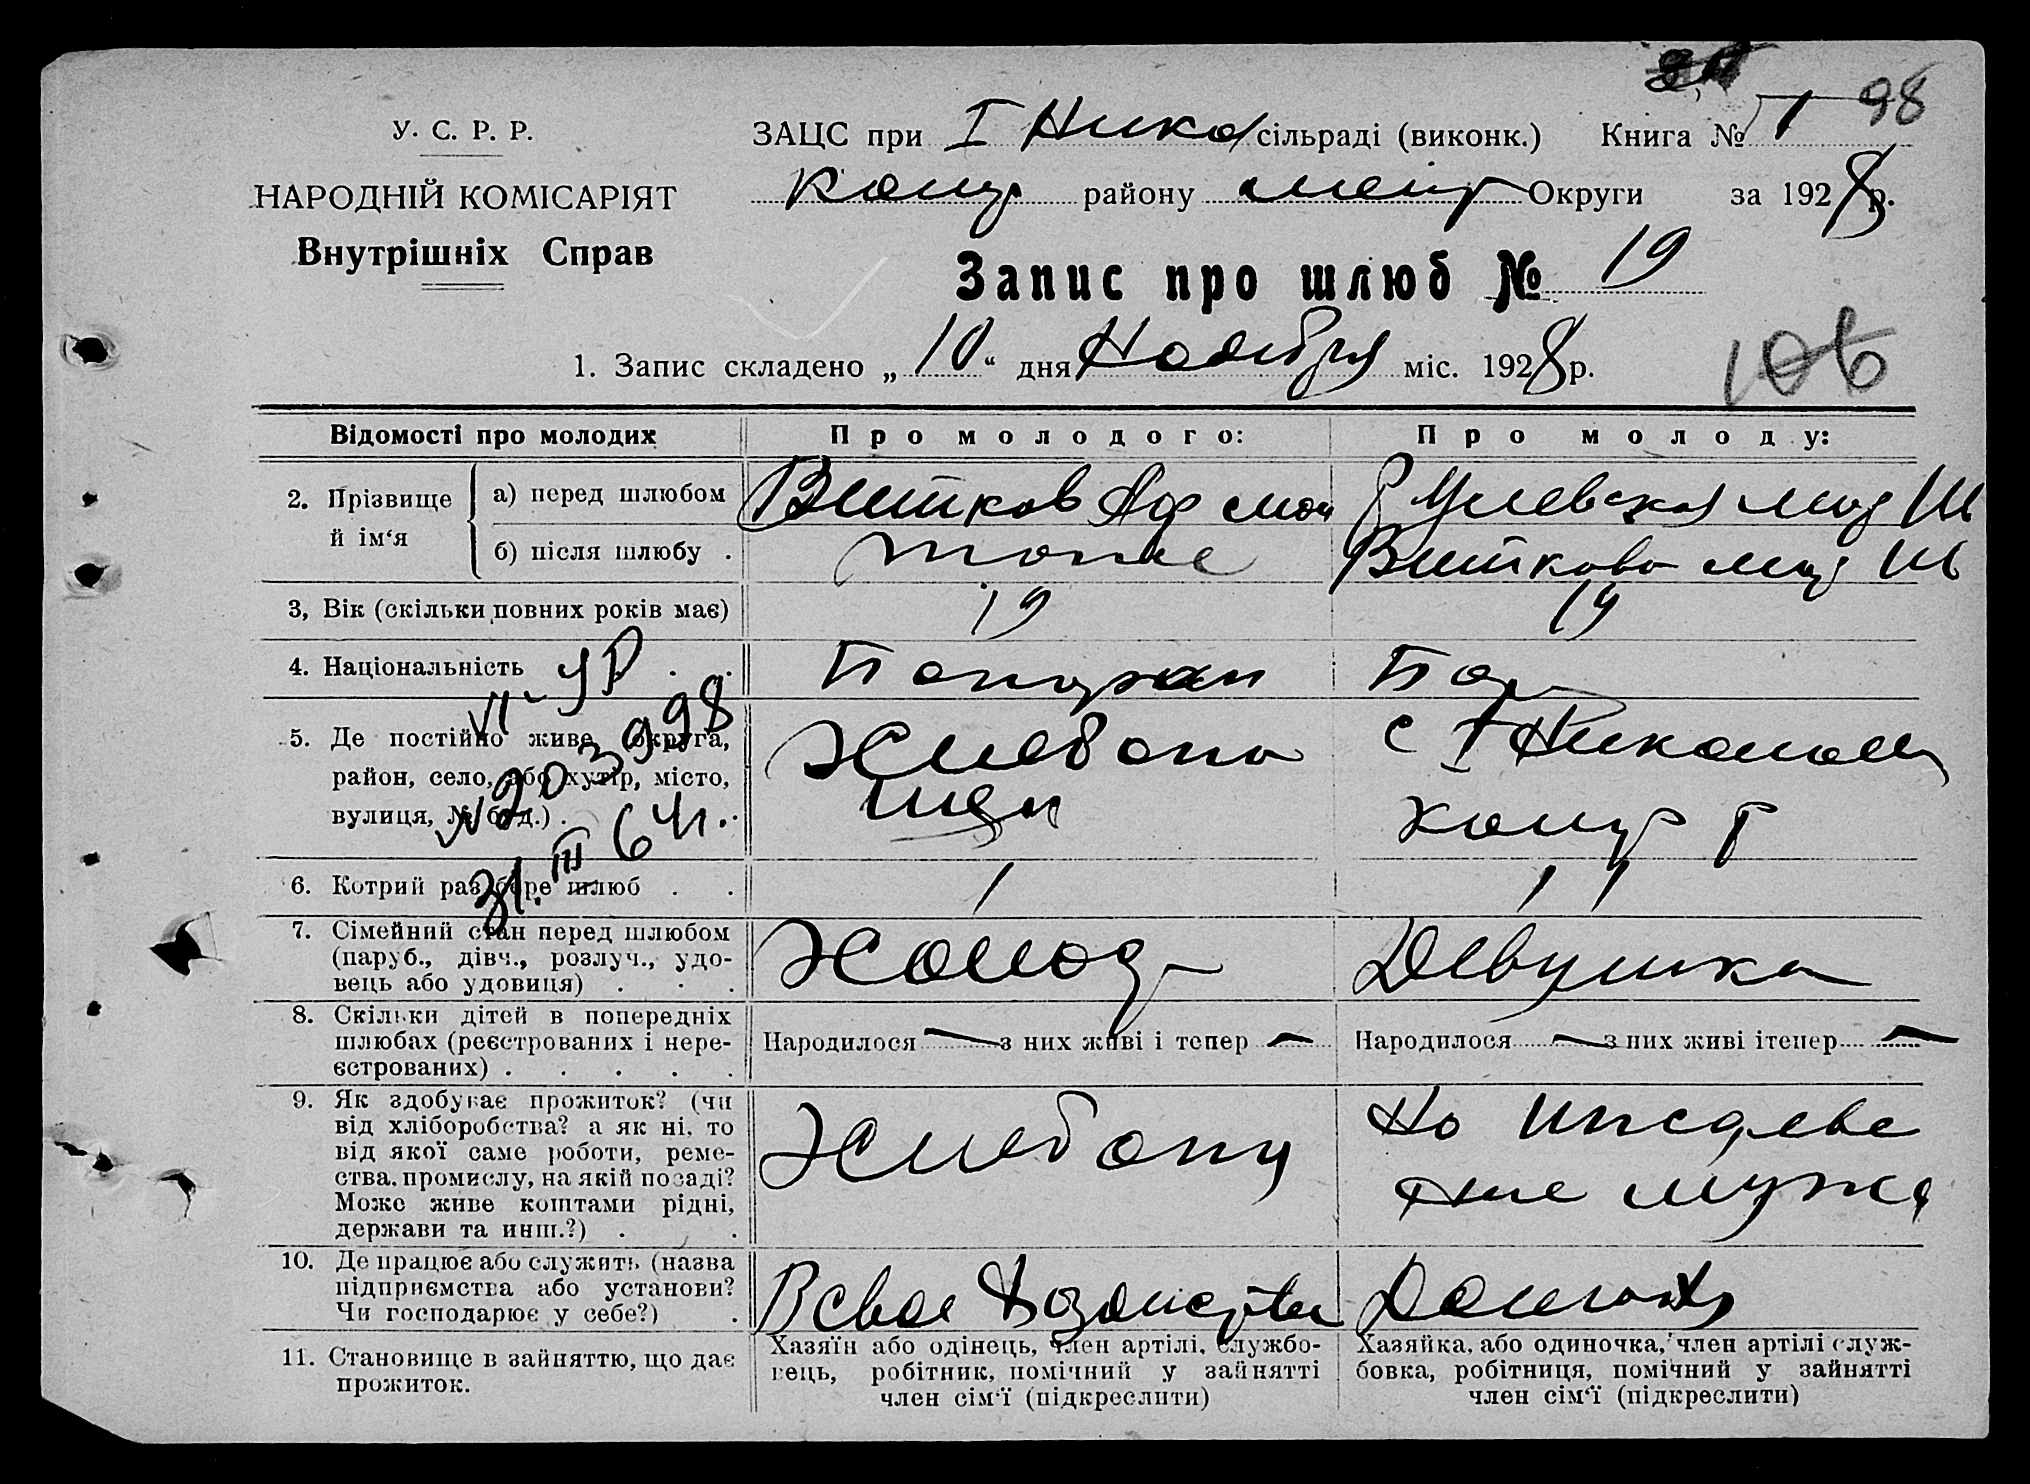 98
У. С. Р. Р.
ЗАЦС при I Нико сільраді (виконк.) Книга № 1
НАРОДНІЙ КОМІСАРІЯТ
району Округи за 1928 р.
Внутрішніх Справ
Запис про шлюб № 19
1. Запис складено „10“ дня Ноября міс. 1928 р.
106
Відомості про молодих
Про молодого:
Про молоду:
2. Прізвище й ім‘я
а) перед шлюбом
Витков
б) після шлюбу .
тоже
Виткова
3, Вік (скільки повних років має)
19
19
4. Національність . .
Бол
VI-УР
№20 39998
31.III 64 г.
5. Де постійно живе (округа,
район, село, або хутір, місто,
вулиця, № буд.) .
с I Николаев
6. Котрий раз бере шлюб . .
1
1
7. Сімейний стан перед шлюбом
(паруб., дівч., розлуч., удо-
вець або удовиця) . . .
Холод
Девушка
8. Скільки дітей в попередніх
шлюбах (реєстрованих і нере-
єстрованих) . . . . .
Народилося — з них живі і тепер —
Народилося — з них живі ітепер —
9. Як здобуває прожиток? (чи
від хліборобства? а як ні, то
від якої саме роботи, реме-
ства, промислу, на якій посаді?
Може живе коштами рідні,
держави та инш.?) . .
Хлебопаш
На иждеве
ние мужа
10. Де працює або служить (назва
підприємства або установи?
Чи господарює у себе?) .
В свое Хозяйстве
Домохоз
11. Становище в зайняттю, що дає
прожиток.
Хазяїн або одінець, член артілі, службо-
вець, робітник, помічний у зайнятті
член сім‘ї (підкреслити)
Хазяйка, або одиночка, член артілі служ-
бовка, робітниця, помічний у зайнятті
член сім‘ї (підкреслити)